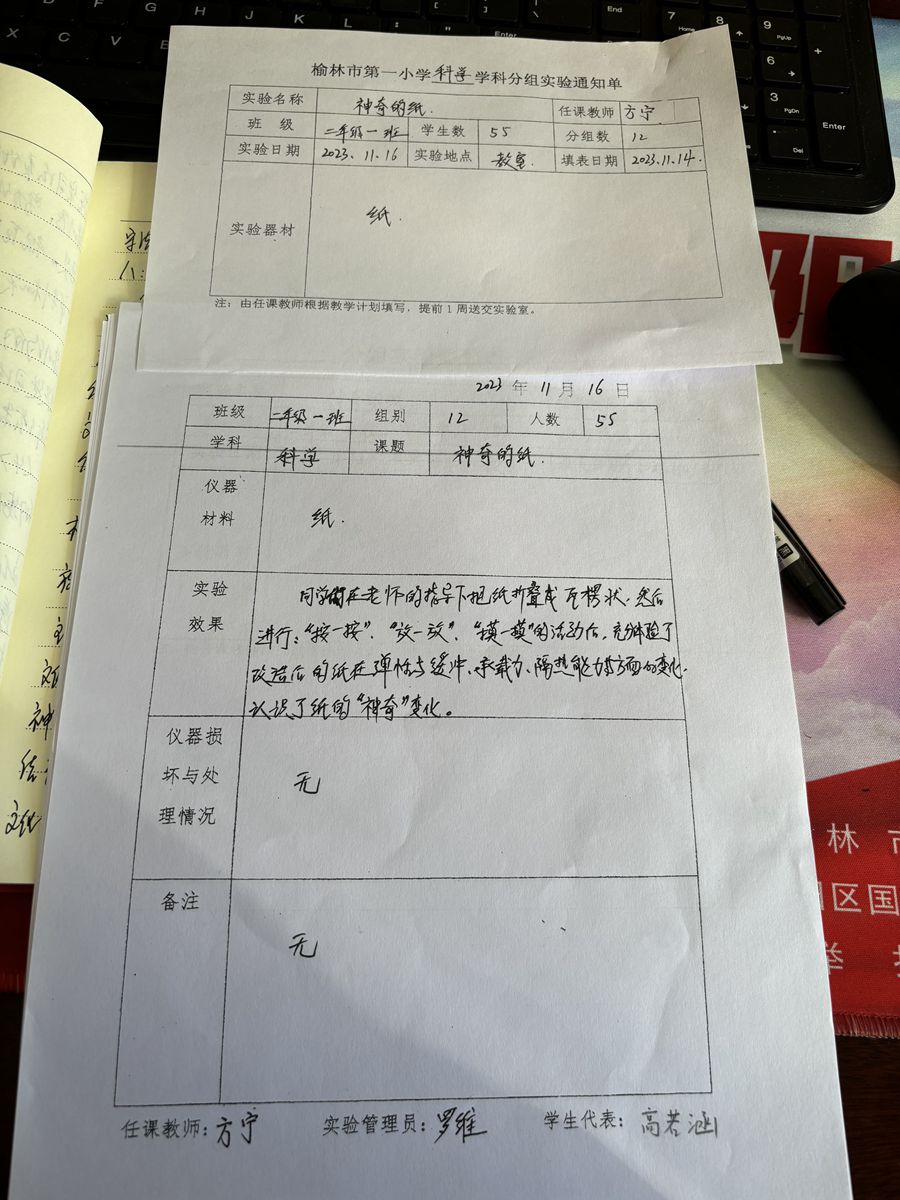 榆林市第一小学科学学科分组实验通知单
实验名称 神奇的纸. 任课教师 方宁
班 级 二年级一班 学生数 55 分组数 12
实验日期 2023.11.16 实验地点 教室. 填表日期 2023.11.14.
实验器材 纸.
注：由任课教师根据教学计划填写，提前1周送交实验室。
2023 年 11 月 16 日
班级 二年级一班 组别 12 人数 55
学科 科学 课题 神奇的纸.
仪器
材料 纸.
实验
效果
同学们在老师的指导下把纸折叠成瓦楞状.然后
进行："按一按"、"放一放"、"摸一摸"的活动后,充分体验了
改造后的纸在弹性与缓冲、承载力、隔热能力等方面的变化.
认识了纸的"神奇"变化。
仪器损
坏与处
理情况
无
备注
无
任课教师：方宁 实验管理员：罗维 学生代表：高若涵
林
区国
举
End
Home
PgUp
PgDn
Enter
Del
Ins